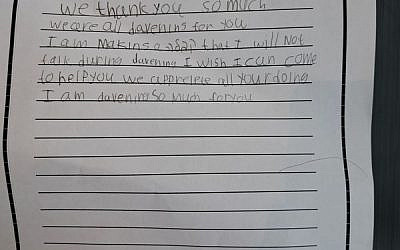 We thank you so much
we are all davening for you
I am making a קבלה that I will not
talk during davening I wish I can come
to help you we apprelete all your doing
I am davening so much for you